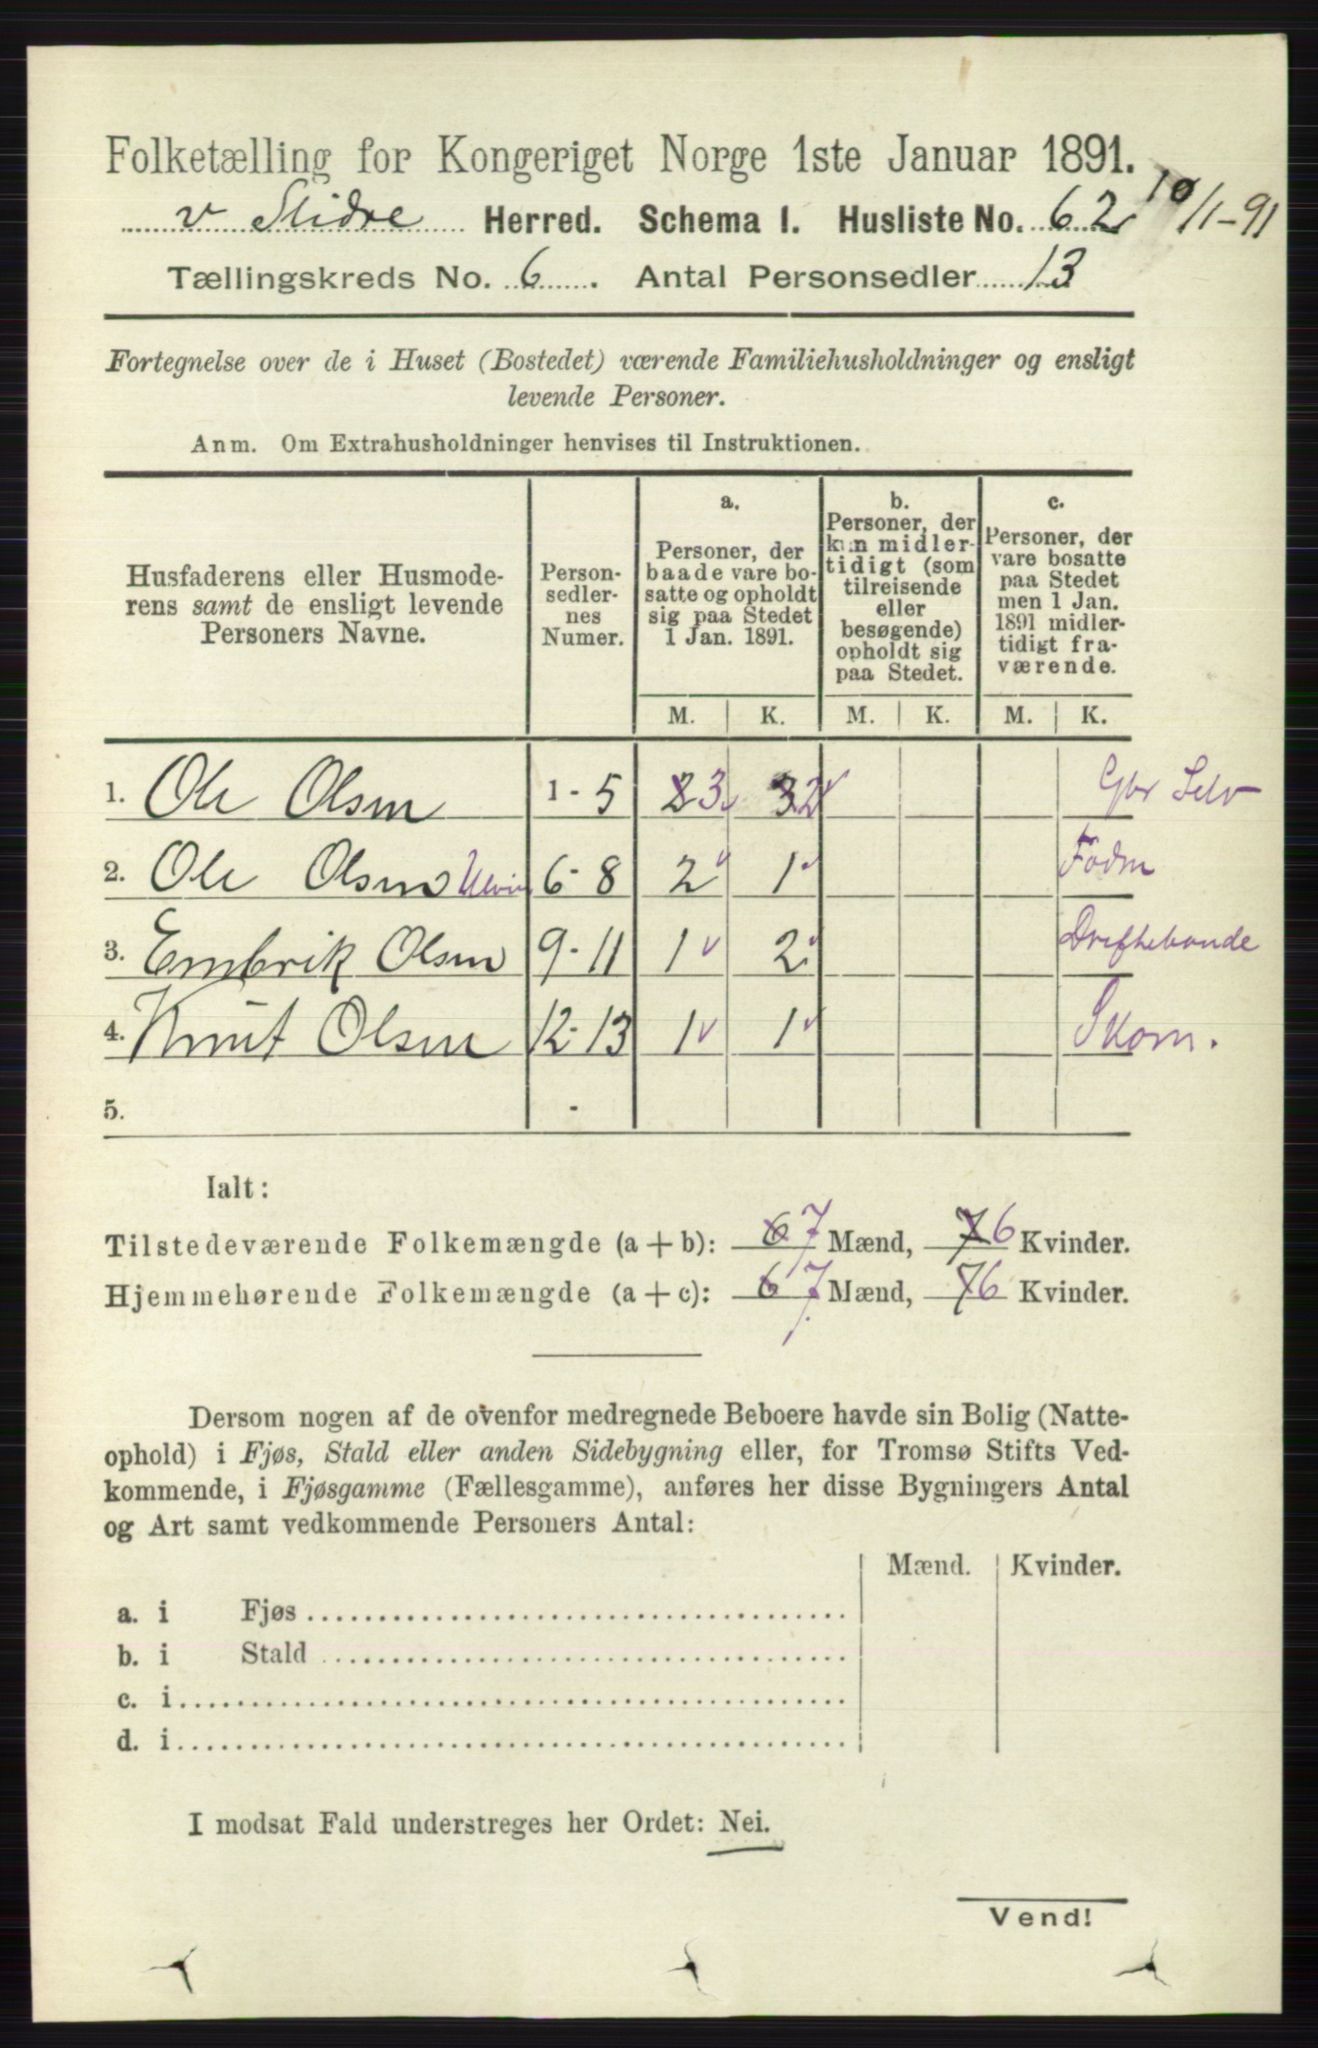 Folketælling for Kongeriget Norge 1ste Januar 1891.
v Slidre Herred. Schema 1. Husliste No. 62 10/1-91
Tællingskreds No. 6. Antal Personsedler 13
Fortegnelse over de i Huset (Bostedet) værende Familiehusholdninger og ensligt
levende Personer.
Anm. Om Extrahusholdninger henvises til Instruktionen.
Husfaderens eller Husmode-
rens samt de ensligt levende
Personers Navne.
Person-
sedler-
nes
Numer.
a.
Personer, der
baade vare bo-
satte og opholdt
sig paa Stedet
1 Jan. 1891.
b.
Personer, der
kun midler-
tidigt (som
tilreisende
eller
besøgende)
opholdt sig
paa Stedet.
c.
Personer, der
vare bosatte
paa Stedet
men 1 Jan.
1891 midler-
tidigt fra-
værende.
M. K. M. K. M. K.
1. Ole Olsen 1 - 5 2 3 3 2 Gbr Selv
2. Ole Olsen 6 - 8 2 1 Födm
3. Embrik Olsen 9 - 11 1 2 Driftebonde
4. Knut Olsen 12 - 13 1 1 Skom.
5. -
Ialt:
Tilstedeværende Folkemængde (a + b): 6 7 Mænd, 7 6 Kvinder.
Hjemmehørende Folkemængde (a + c): 6 7 Mænd, 7 6 Kvinder.
Dersom nogen af de ovenfor medregnede Beboere havde sin Bolig (Natte-
ophold) i Fjøs, Stald eller anden Sidebygning eller, for Tromsø Stifts Ved-
kommende, i Fjøsgamme (Fællesgamme), anføres her disse Bygningers Antal
og Art samt vedkommende Personers Antal:
Mænd. Kvinder.
a. i Fjøs
b. i Stald
c. i
d. i
I modsat Fald understreges her Ordet: Nei.
Vend!